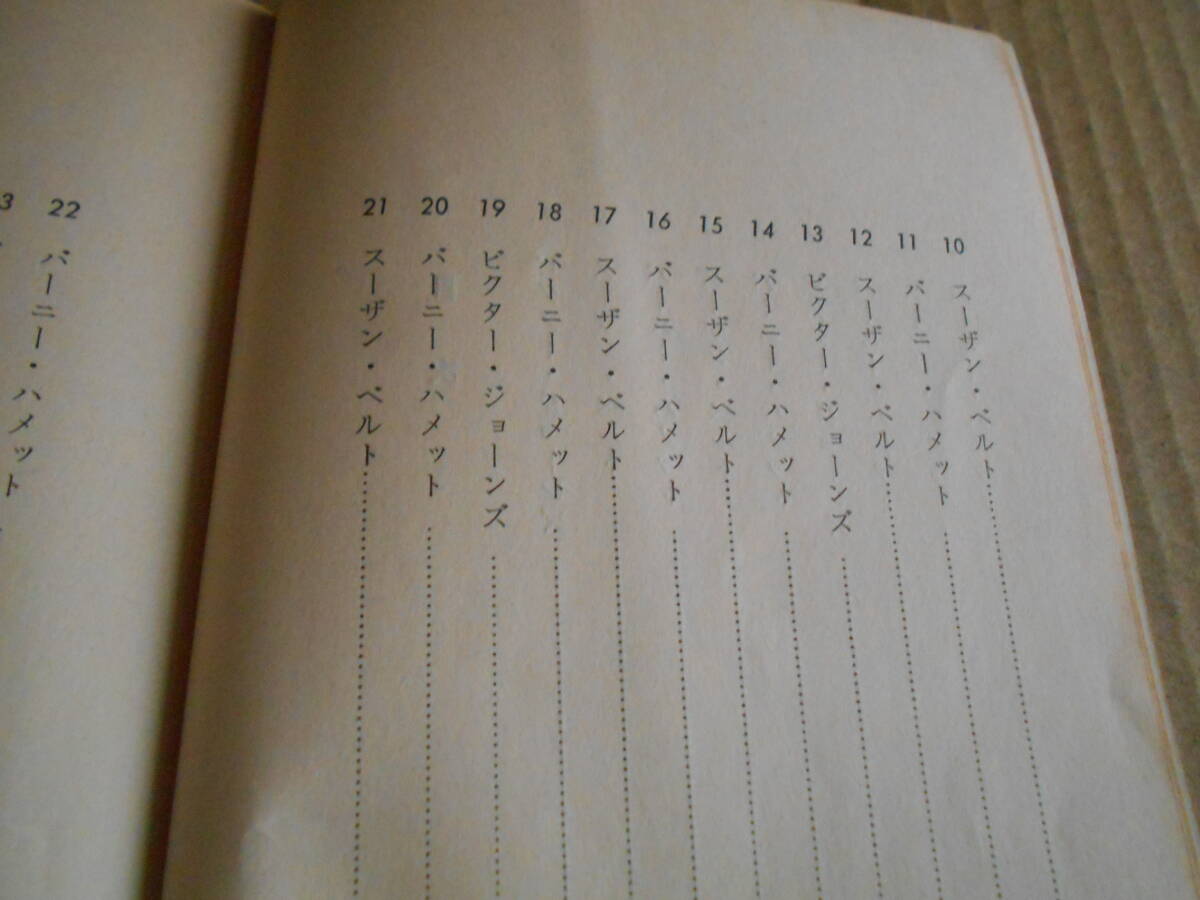 10 スーザン・ベルト
11 バーニー・ハメット
12 スーザン・ベルト
13 ビクター・ジョーンズ
14 バーニー・ハメット
15 スーザン・ベルト
16 バーニー・ハメット
17 スーザン・ベルト
18 バーニー・ハメット
19 ビクター・ジョーンズ
20 バーニー・ハメット
21 スーザン・ベルト
22 バーニー・ハメット